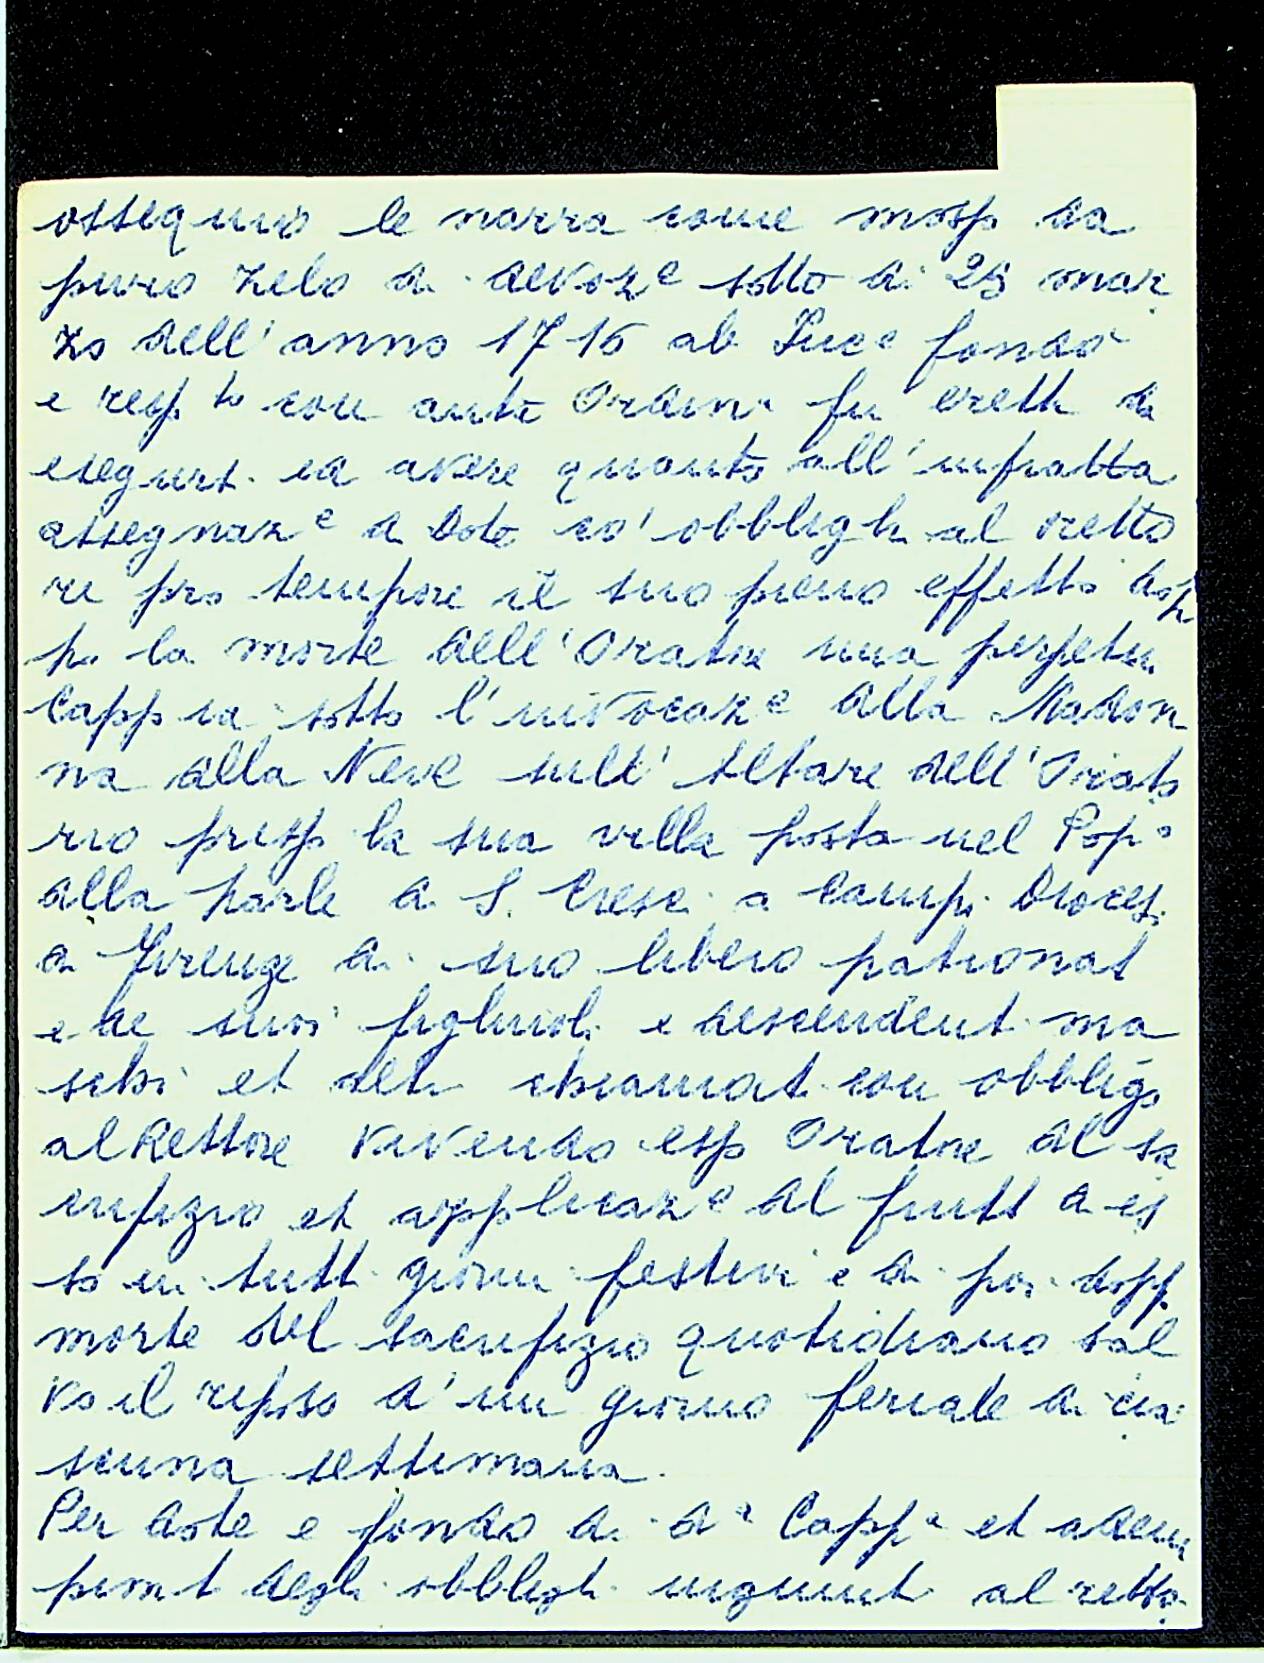 ossequio le narra come mosso da
puro zelo di devoz e sotto di 25 mar
zo dell'anno 1716 ab Inc e fondò
e resp te con aut e Ordin a fu erett di
esegurs. ed avere quanto all'infratta
assegnaz e di Dote co' obbligh al retto
re pro tempore il suo pieno effetto dop
po la morte dell'Oratore una perpetu
Capp ia sotto l'invocaz e dlla Madon
na dlla Neve sull'Altare dell'Orato
rio presso la sua villa posta nel Pop o
dlla Parle di S. Cresci a Campi Dioces.
di Firenze di suo libero patronat
e de suoi figliuoli e descendent ma
schi et delli chiamat con obbligo
al Rettore vivendo esso Oratore dl sa
crifizio et applicaz e dl frutt di es
so in tutt giorni festivi e di poi dopp
morte del sacrifizio quotidiano sal
vo il riposo d'un giorno feriale di cia
scuna settimana.
Per dote e fondo di d a Capp a et adem
pimt degli obblighi ingiunti al retto